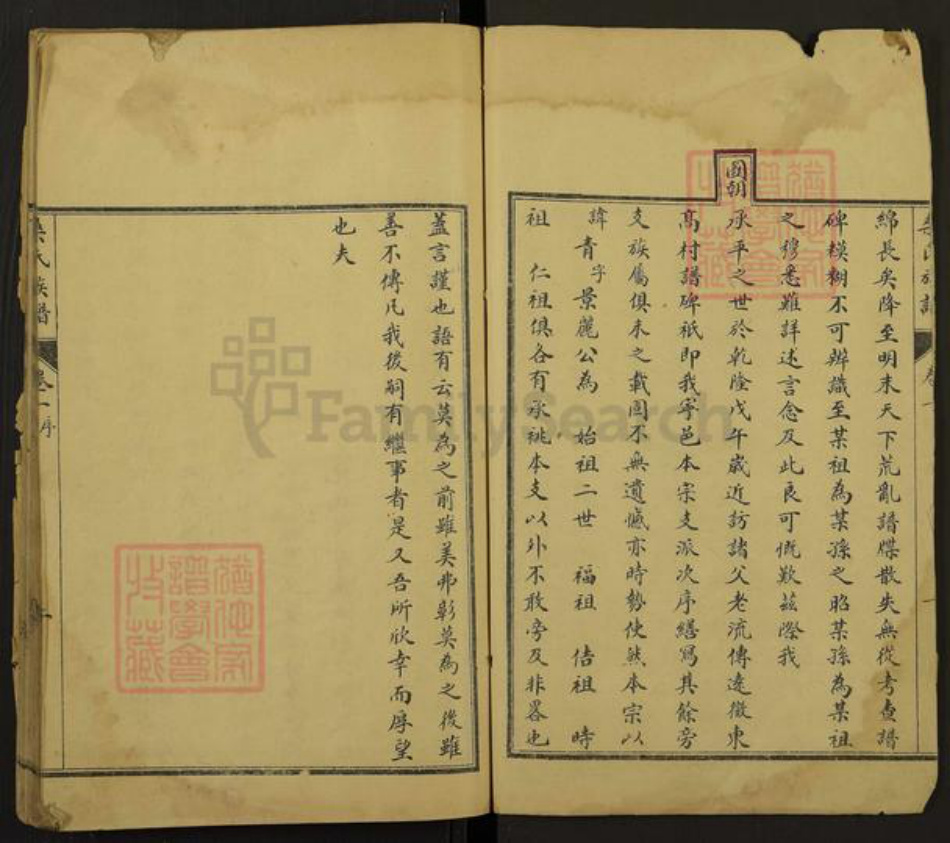 綿長矣降至明末天下荒亂譜牒散失無從考查譜
碑模糊不可辨識至某祖為某孫之昭某孫為某祖
之穆悉難詳述言念及此良可慨歎茲際我
國朝
承平之世於乾隆戊午歲近訪諸父老流傳遠徵東
高村譜碑祇即我寧邑本宗支派次序繕寫其餘旁
支族屬俱未之載固不無遺憾亦時勢使然本宗以
諱青字景麓公為 始祖二世 福祖 佶祖 時
祖 仁祖俱各有承祧本支以外不敢旁及非畧也
蓋言謹也語有云莫為之前雖美弗彰莫為之後雖
善不傳凡我後嗣有繼事者是又吾所欣幸而厚望
也夫
氏族譜 卷一序
猶他家譜學會收藏
猶他家譜學會收藏
FamilySearch